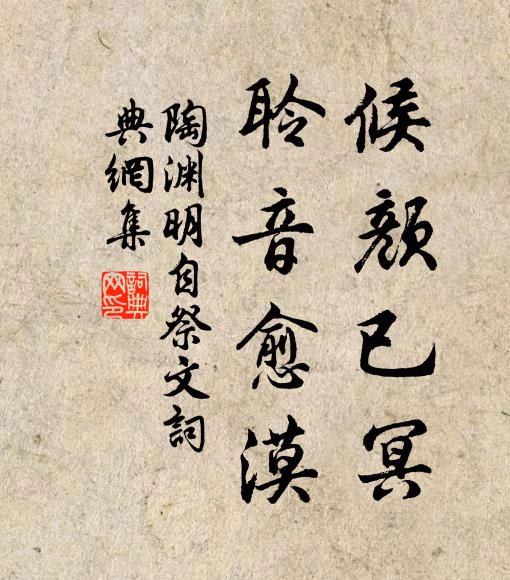 候顏已冥
聆音愈漠
陶渊明自祭文詞
典網集
詞典
网印